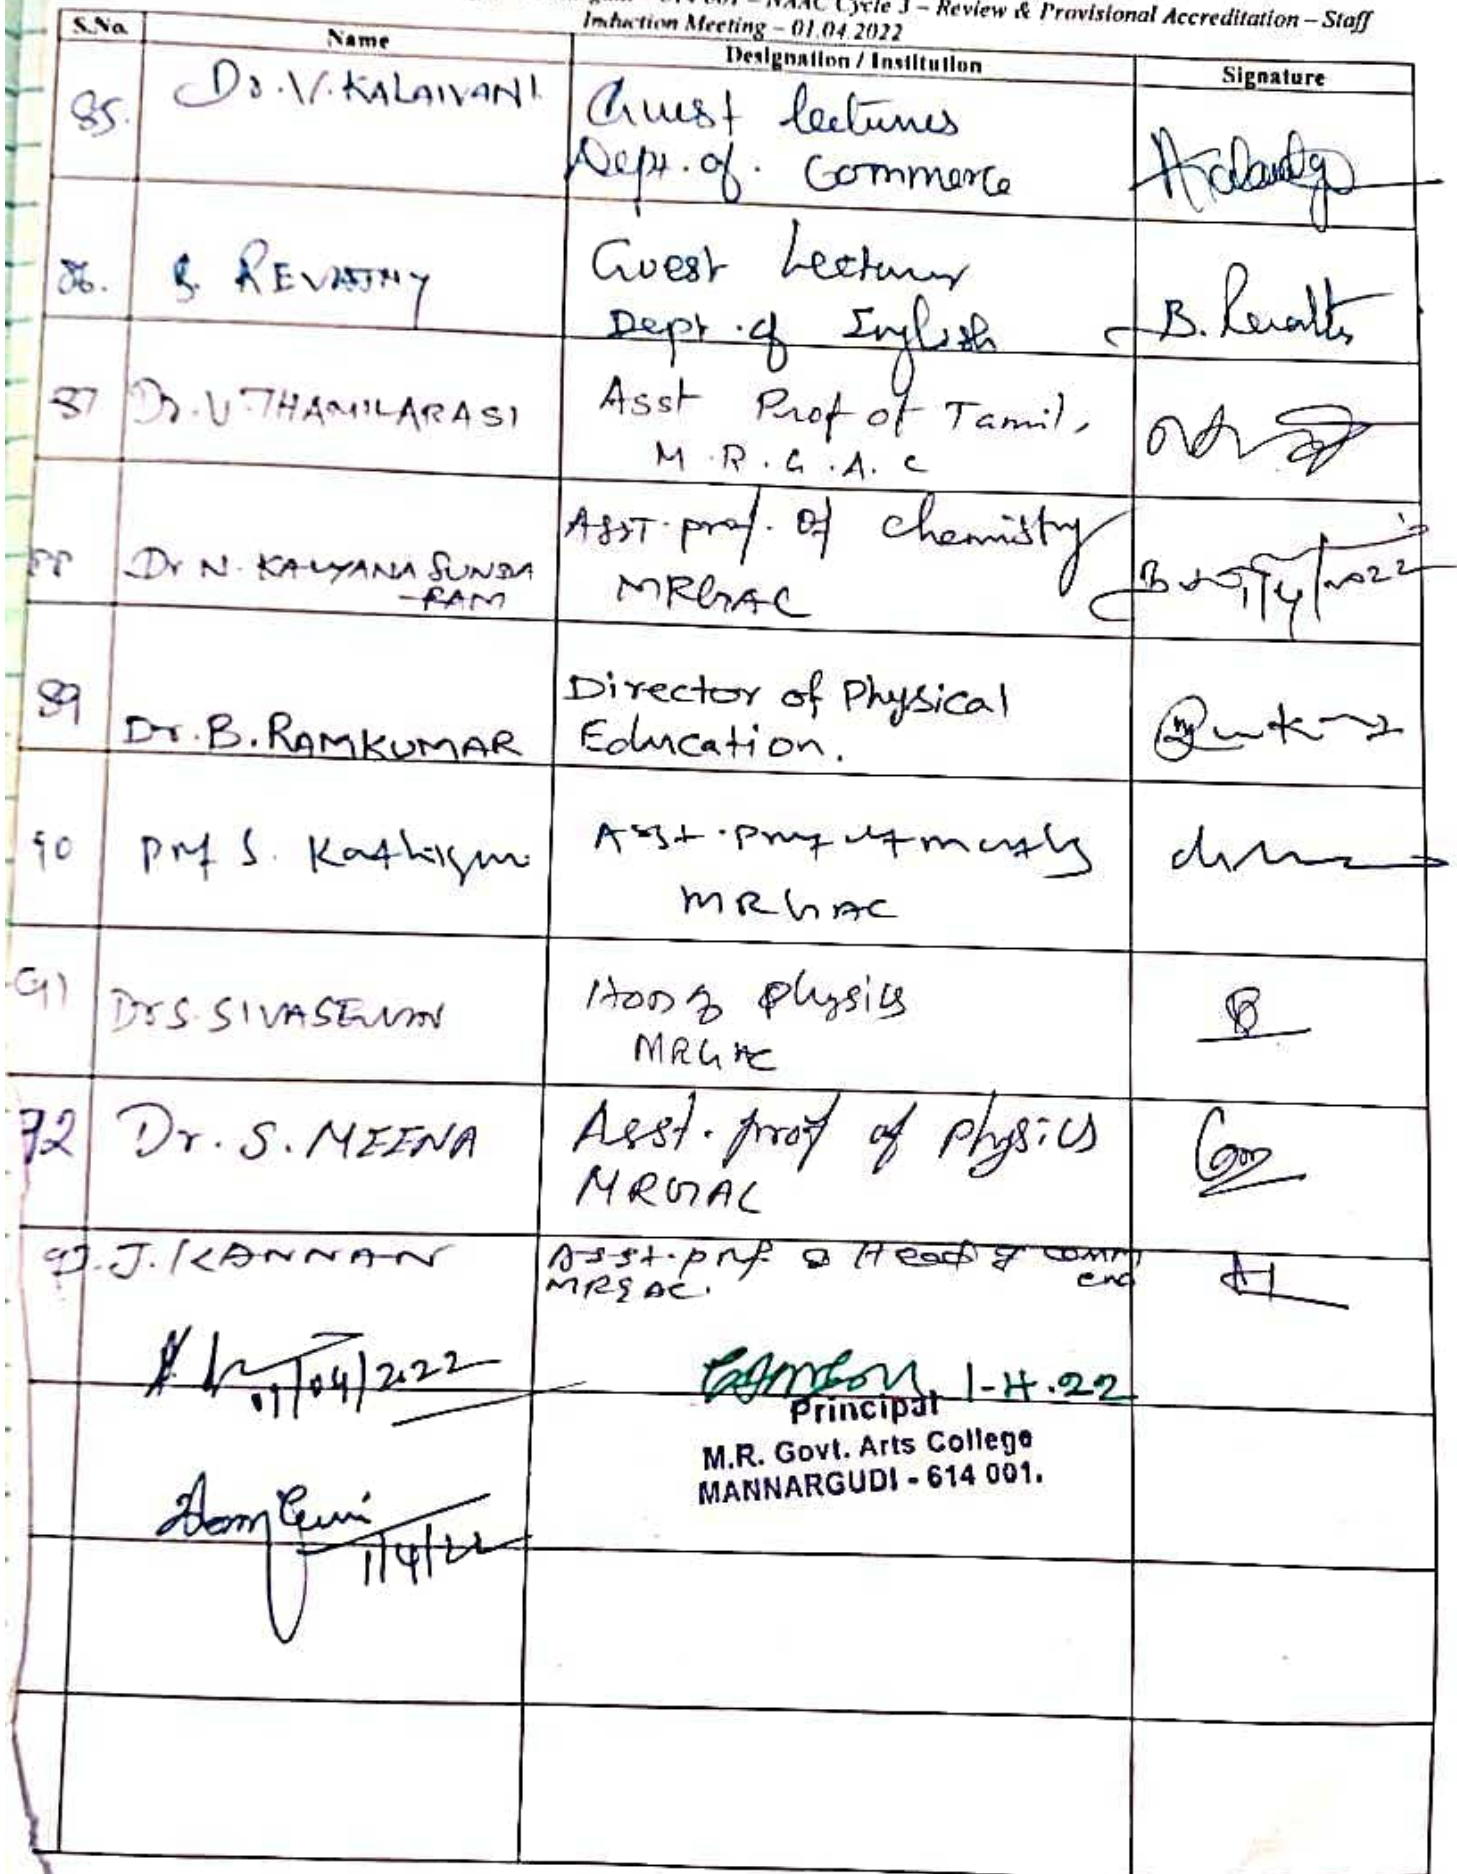 NAAC Cycle 3 – Review & Provisional Accreditation – Staff
Induction Meeting – 01.04.2022
S.No Name Designation / Institution Signature
85. Dr. V. KALAIVANI Guest lectures
Dept. of. Commerce
86. B. REVATHY Guest Lecturer
Dept. of English B. Revathy
87 Dr. V. THAMILARASI Asst Prof of Tamil,
M.R.G.A.C
88 Dr N. KALYANA SUNDA Asst. prof. of chemistry
-RAM MRGAC 1/4/2022
89 Dr. B. RAMKUMAR Director of Physical
Education.
90 Prof S. Asst. Prof of maths
MRGAC
91 Dr S. SIVASELVAN HOD of physics
MRGAC
92 Dr. S. MEENA Asst. prof of physics
MRGAC
93. J. KANNAN Asst. prof & Head of comm
MRGAC. erce
01/04/2022
1-4-22
Principal
M.R. Govt. Arts College
MANNARGUDI - 614 001.
1/4/22